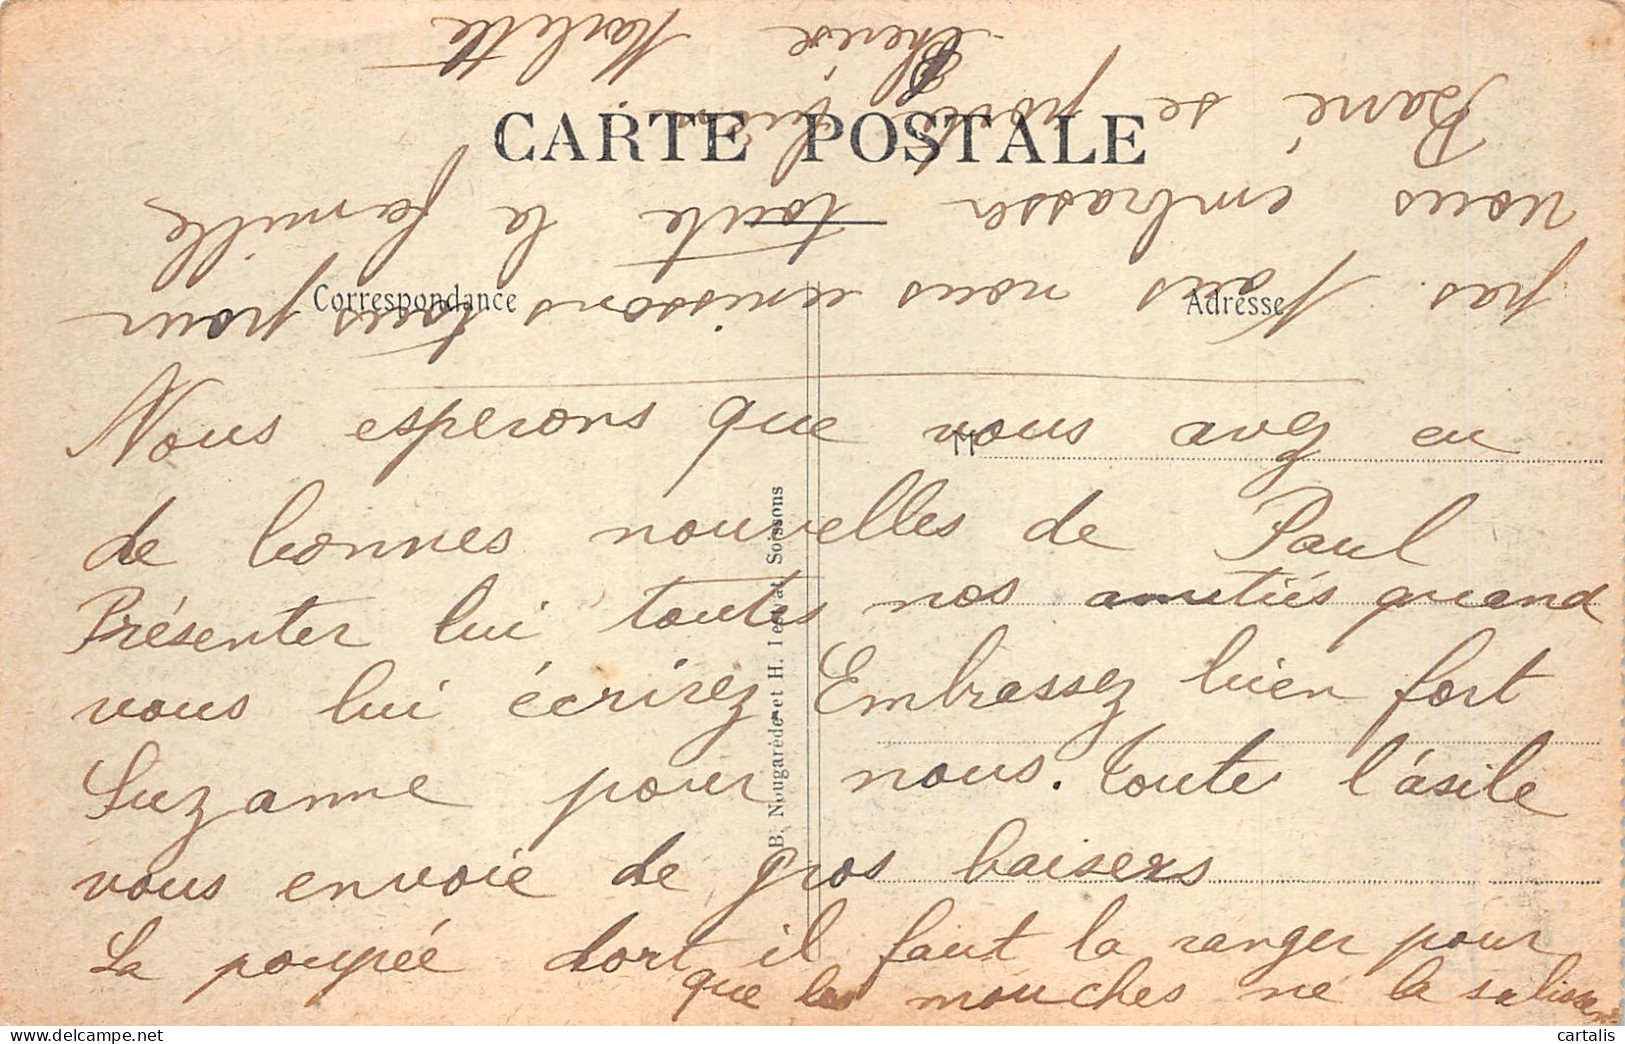 CARTE POSTALE
Correspondance
Adresse
M
B. Nougarède et H. Soissons
Nous esperons que vous avez eu
de bonnes nouvelles de Paul
Présenter lui toutes nos amitiés quand
vous lui écrirez Embrassez bien fort
Suzanne pour nous. toute l'asile
vous envoie de gros baisers
La poupée dort il faut la ranger pour
que les mouches ne la salissent
pas. Mais nous unissons tous pour
vous embrasser toute la famille
se porte bien
cherie
cartalis